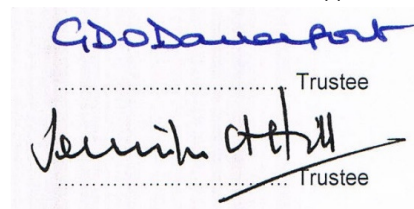 GDODavenport
........................................ Trustee
Jennifer A Hill
........................................ Trustee